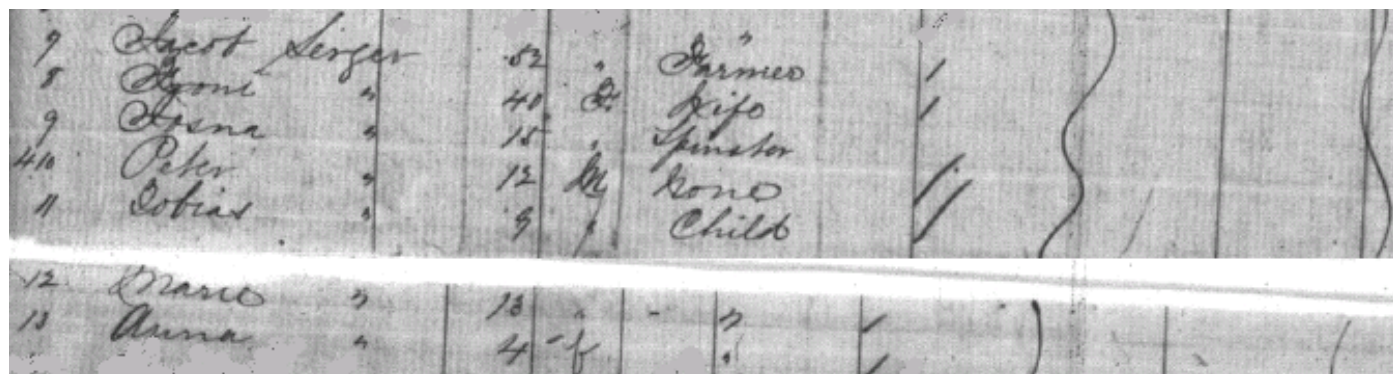 7 Jacob Senger 52 " Farmer /
8 Froni " 40 F Wife /
9 " 15 " Spinster
410 Peter " 12 M None /
11 Tobias " 9 " Child /
12 Marie " 13 " - " /
13 Anna " 4 f " /